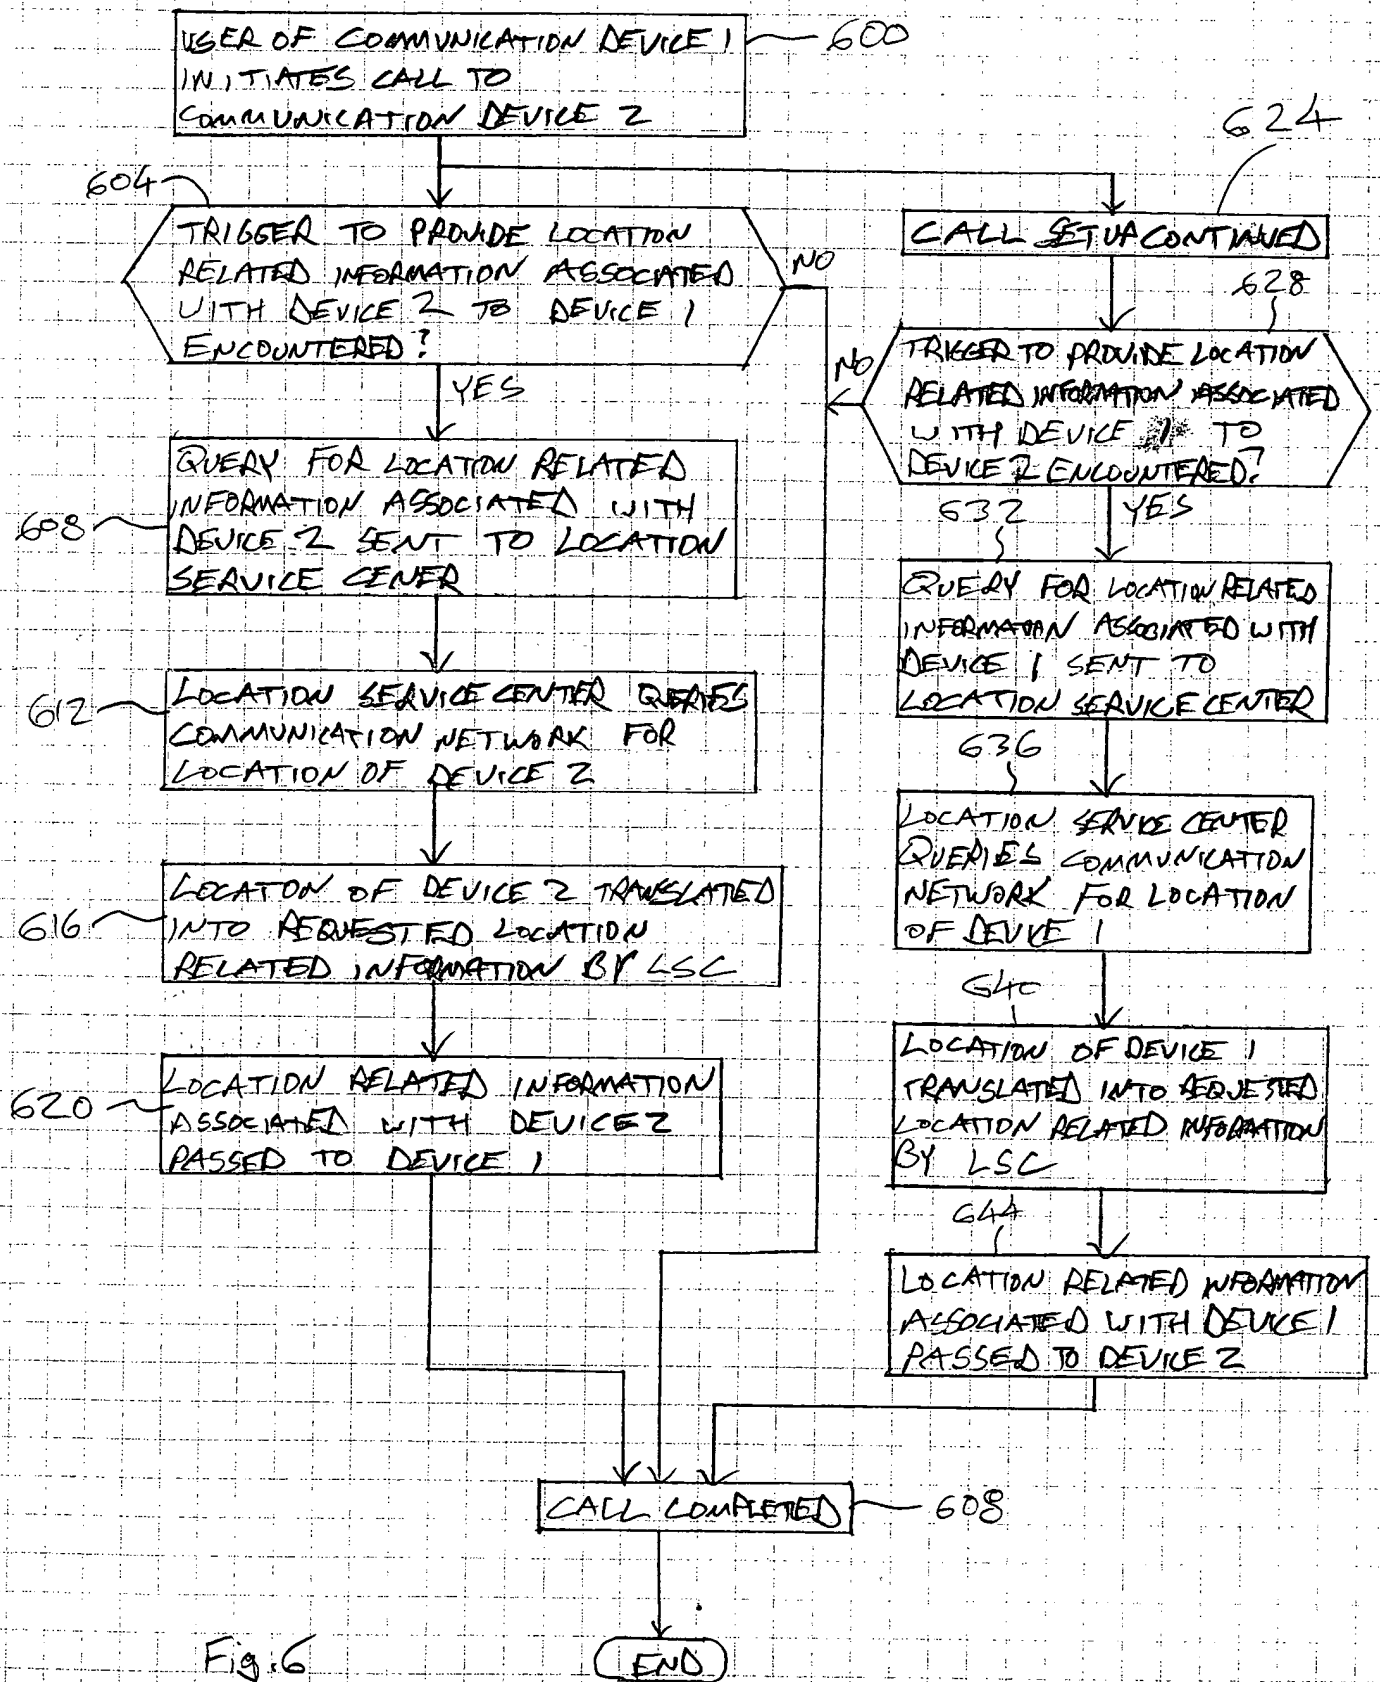 USER OF COMMUNICATION DEVICE 1
INITIATES CALL TO
COMMUNICATION DEVICE 2
600
624
604
TRIGGER TO PROVIDE LOCATION
RELATED INFORMATION ASSOCIATED
WITH DEVICE 2 TO DEVICE 1
ENCOUNTERED?
NO
YES
CALL SETUP CONTINUED
628
NO
TRIGGER TO PROVIDE LOCATION
RELATED INFORMATION ASSOCIATED
WITH DEVICE 1 TO
DEVICE 2 ENCOUNTERED?
YES
608
QUERY FOR LOCATION RELATED
INFORMATION ASSOCIATED WITH
DEVICE 2 SENT TO LOCATION
SERVICE CENER
632
QUERY FOR LOCATION RELATED
INFORMATION ASSOCIATED WITH
DEVICE 1 SENT TO
LOCATION SERVICE CENTER
612
LOCATION SERVICE CENTER QUERIES
COMMUNICATION NETWORK FOR
LOCATION OF DEVICE 2
636
LOCATION SERVICE CENTER
QUERIES COMMUNICATION
NETWORK FOR LOCATION
OF DEVICE 1
616
LOCATON OF DEVICE 2 TRANSLATED
INTO REQUESTED LOCATION
RELATED INFORMATION BY LSC
640
LOCATION OF DEVICE 1
TRANSLATED INTO REQUESTED
LOCATION RELATED INFORMATION
BY LSC
620
LOCATION RELATED INFORMATION
ASSOCIATED WITH DEVICE 2
PASSED TO DEVICE 1
644
LOCATION RELATED INFORMATION
ASSOCIATED WITH DEVICE 1
PASSED TO DEVICE 2
CALL COMPLETED
608
END
Fig. 6